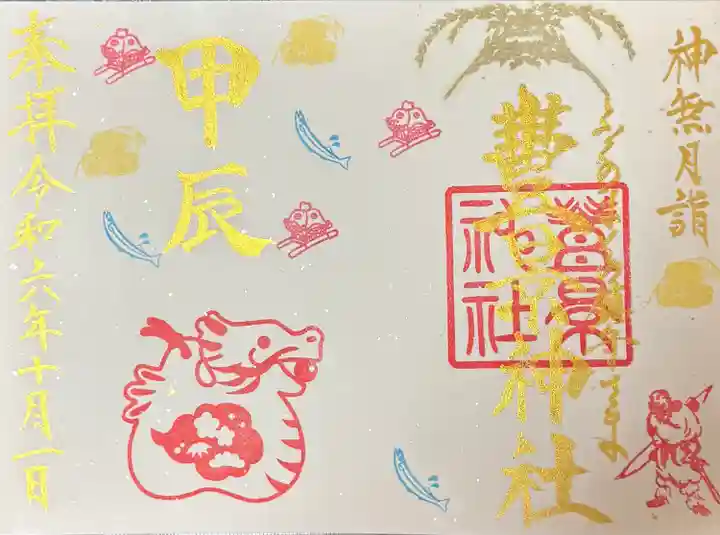 神無月詣
豐景神社
豐景
神社
甲辰
奉拝令和六年十月一日